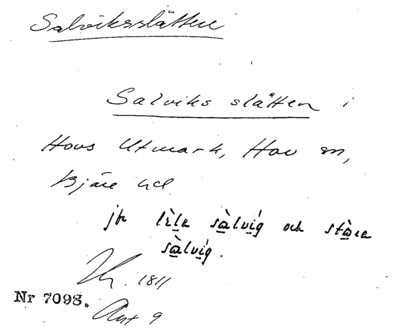 Salviksslätten
Salviks slätten i
Hovs Utmark, Hov sn,
Bjäre hd
jfr lìla sàlvíg och stòra
sàlvíg.
1811
Nr 7098.
Ant 9